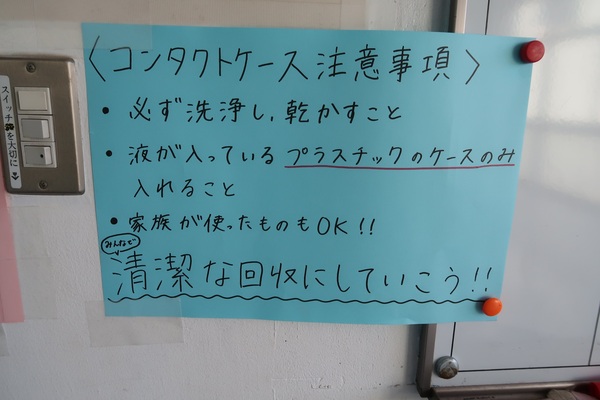 〈コンタクトケース注意事項〉
・必ず洗浄し、乾かすこと
・液が入っているプラスチックのケースのみ
入れること
・家族が使ったものもOK!!
みんなで
清潔な回収にしていこう!!
スイッチを大切に